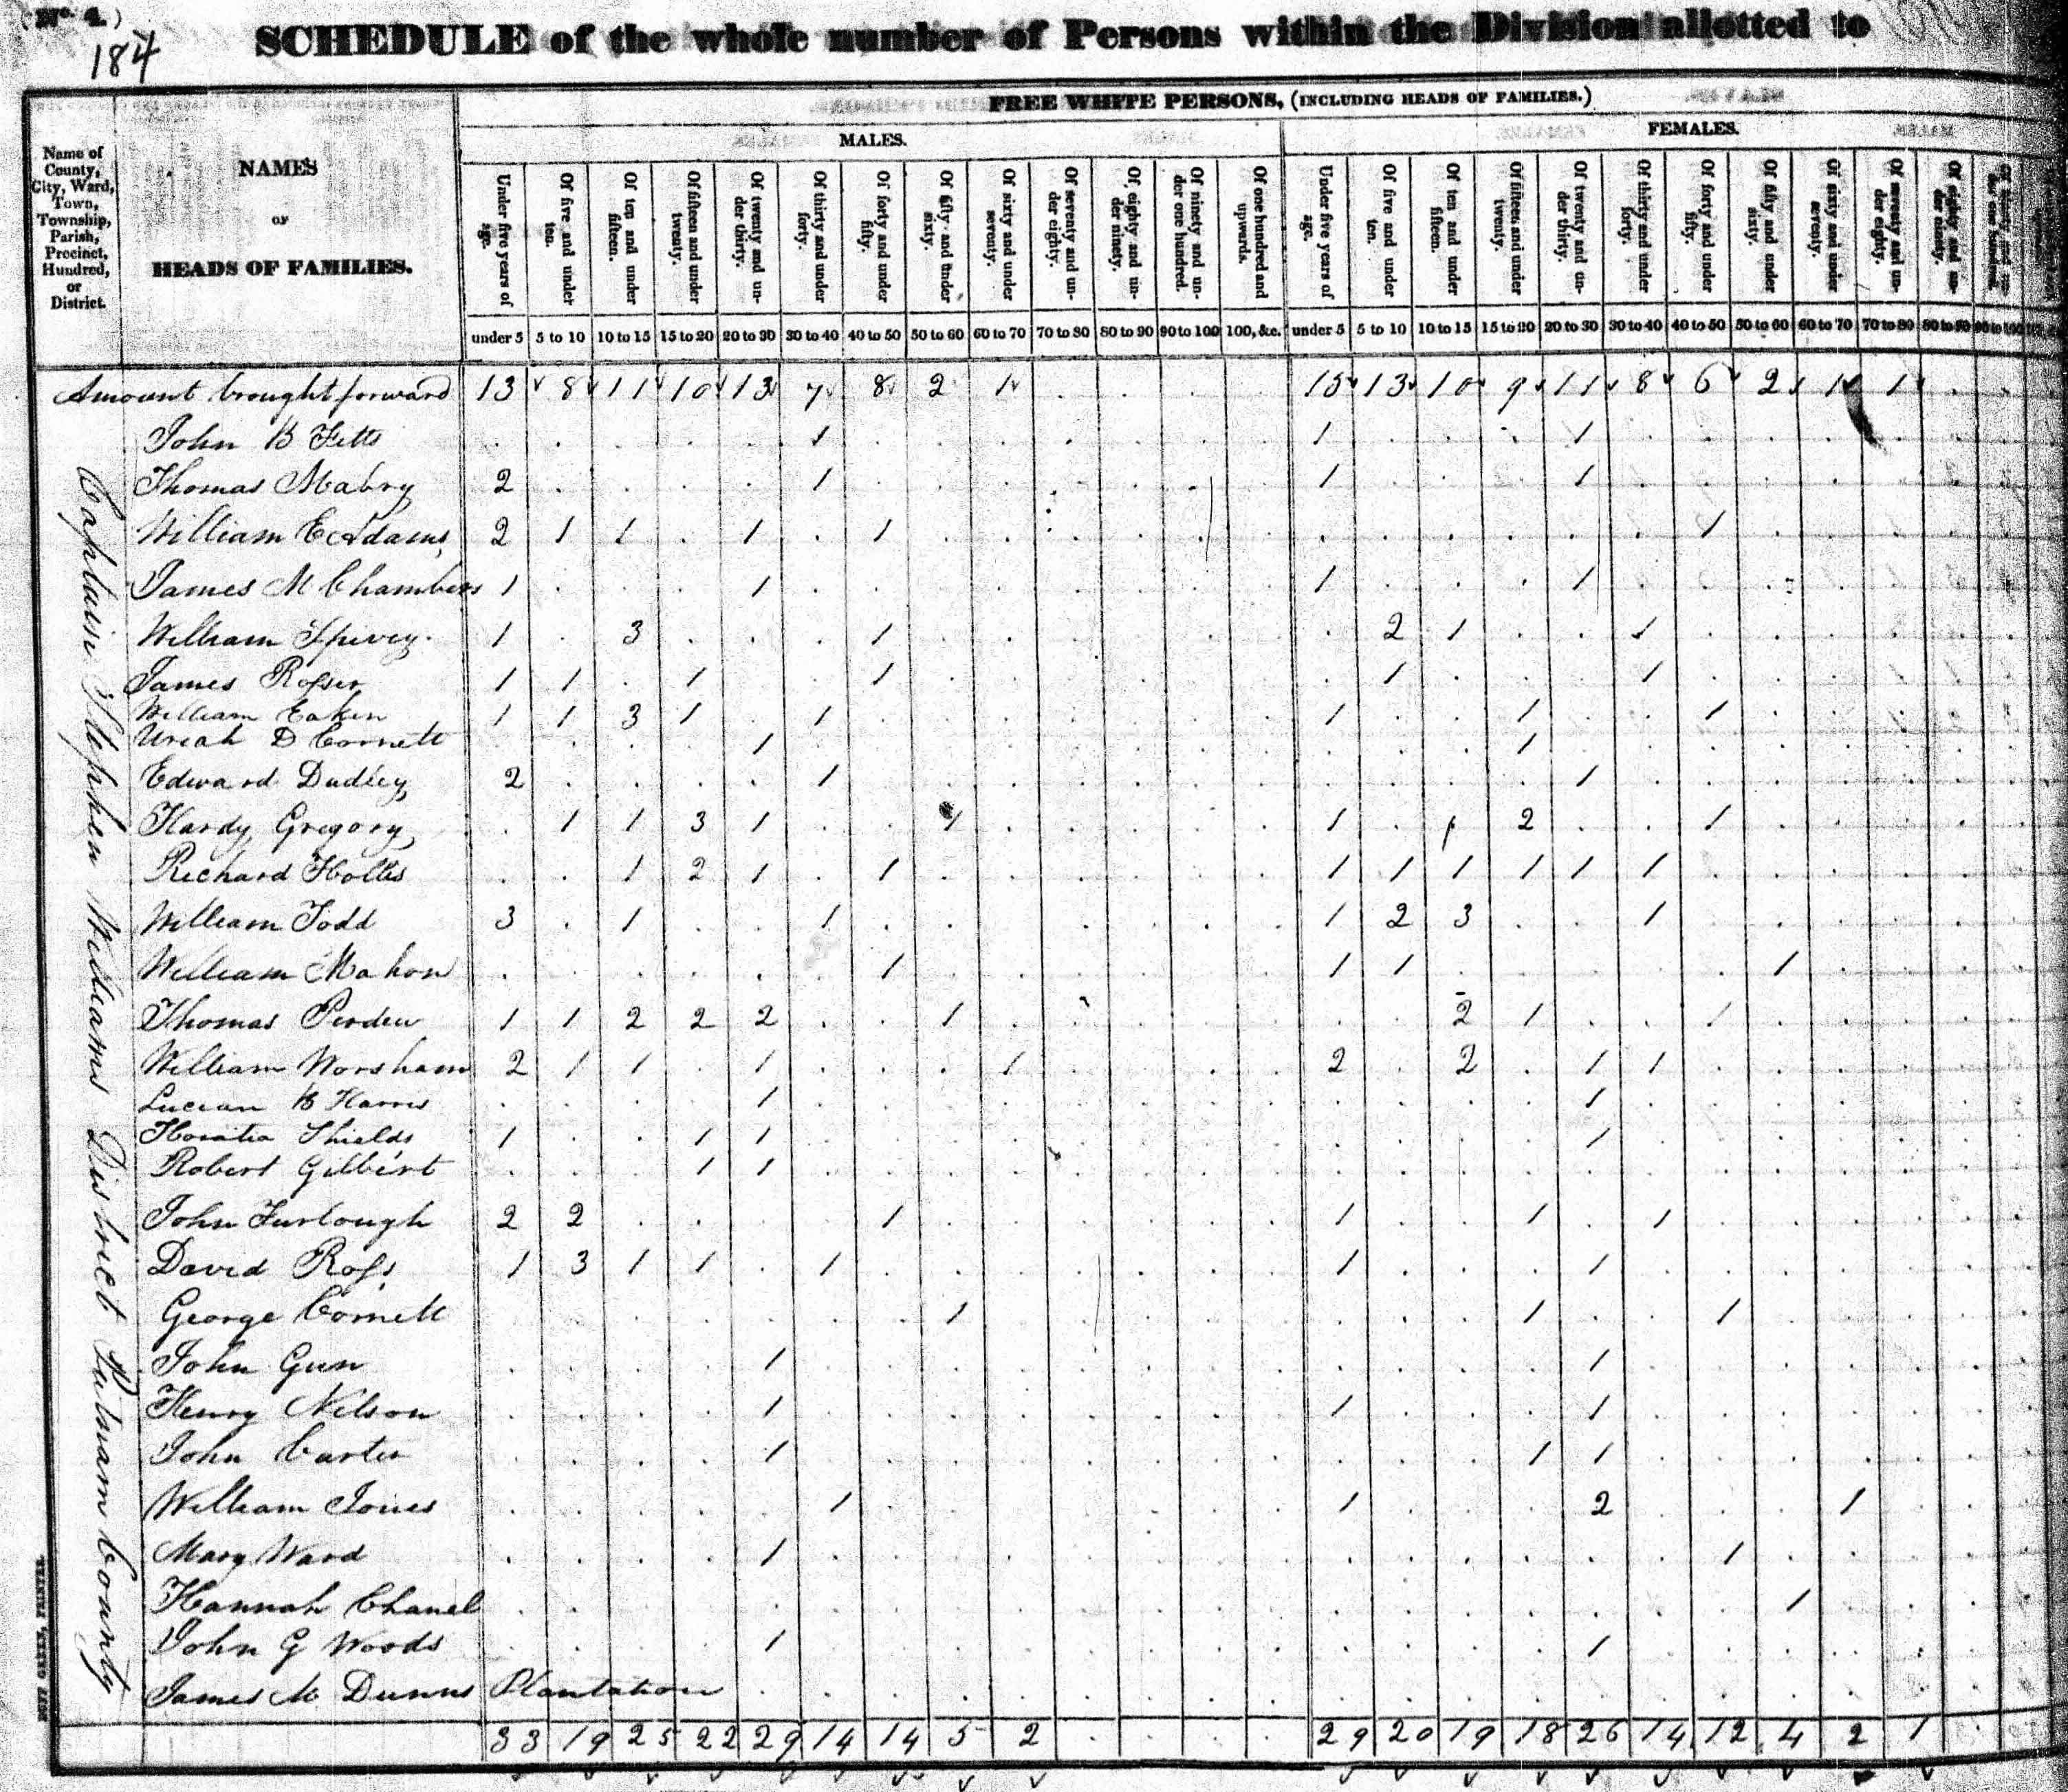 (No. 4.)
184
SCHEDULE of the whole number of Persons within the Division allotted to
FREE WHITE PERSONS, (INCLUDING HEADS OF FAMILIES.)
MALES. FEMALES.
Name of County, City, Ward, Town, Township, Parish, Precinct, Hundred, or District.
NAMES
OF
HEADS OF FAMILIES.
Under five years of age. Of five and under ten. Of ten and under fifteen. Of fifteen and under twenty. Of twenty and under thirty. Of thirty and under forty. Of forty and under fifty. Of fifty and under sixty. Of sixty and under seventy. Of seventy and under eighty. Of eighty and under ninety. Of ninety and under one hundred. Of one hundred and upwards. Under five years of age. Of five and under ten. Of ten and under fifteen. Of fifteen and under twenty. Of twenty and under thirty. Of thirty and under forty. Of forty and under fifty. Of fifty and under sixty. Of sixty and under seventy. Of seventy and under eighty. Of eighty and under ninety.
under 5 5 to 10 10 to 15 15 to 20 20 to 30 30 to 40 40 to 50 50 to 60 60 to 70 70 to 80 80 to 90 90 to 100 100, &c. under 5 5 to 10 10 to 15 15 to 20 20 to 30 30 to 40 40 to 50 50 to 60 60 to 70 70 to 80 80 to 90 90 to 100
Captain Stephen Williams District Putnam County
Amount brought forward 13 8 11 10 13 7 8 2 1 15 13 10 9 11 8 6 2 1 1
John B Fitts 1 1 1
Thomas Mabry 2 1 1 1
William E Adams 2 1 1 1 1 1
James M Chambers 1 1 1 1
William Spivey 1 3 1 2 1 1
James Rosser 1 1 1 1 1 1
William Eakin 1 1 3 1 1 1 1 1
Uriah D Cornett 1 1
Edward Dudley 2 1 1
Hardy Gregory 1 1 3 1 1 1 1 2 1
Richard Hollis 1 2 1 1 1 1 1 1 1 1
William Todd 3 1 1 1 2 3 1
William Mahon 1 1 1 1
Thomas Perdew 1 1 2 2 2 1 2 1 1
William Worsham 2 1 1 1 1 2 2 1 1
Lucian B Harris 1 1
Horatio Shields 1 1 1 1
Robert Gilbert 1 1
John Furlough 2 2 1 1 1 1
David Ross 1 3 1 1 1 1 1
George Cornett 1 1 1
John Gun 1 1
Henry Nelson 1 1 1
John Carter 1 1 1
William Jones 1 1 2 1
Mary Ward 1 1
Hannah Chanel 1
John G Woods 1 1
James M Dunns Plantation
33 19 25 22 29 14 14 5 2 29 20 19 18 26 14 12 4 2 1
DUFF GREEN, PRINTER.